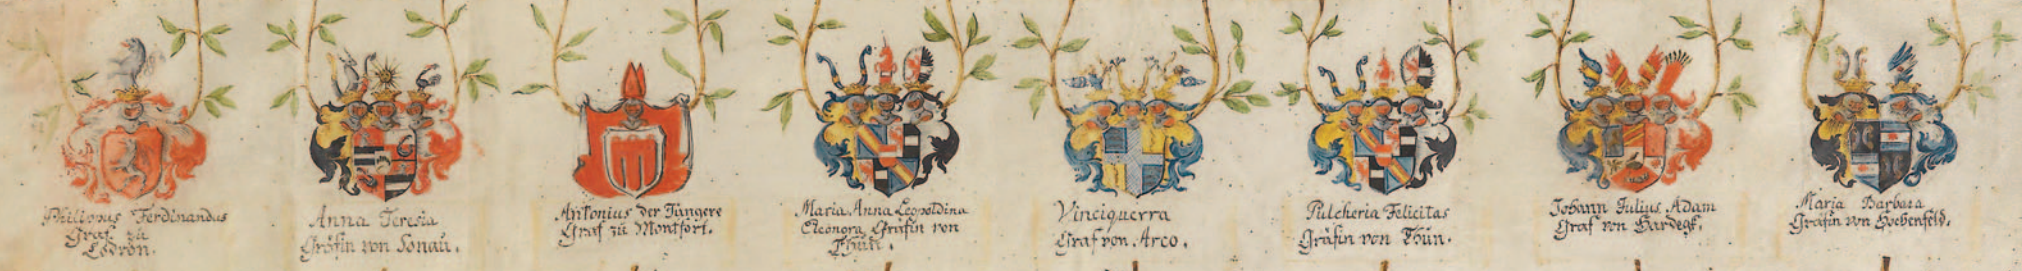 Philippus Ferdinandus
Graf zu
Lodron.
Anna Teresia
Gräfin von Jonau.
Antonius der Jüngere
Graf zu Montfort.
Maria Anna Leopoldina
Eleonora Gräfin von
Thün.
Vinciquerra
Graf von Arco.
Pulcheria Felicitas
Gräfin von Thün.
Johann Julius Adam
Graf von Hardegk.
Maria Barbara
Gräfin von Hochenfeld.